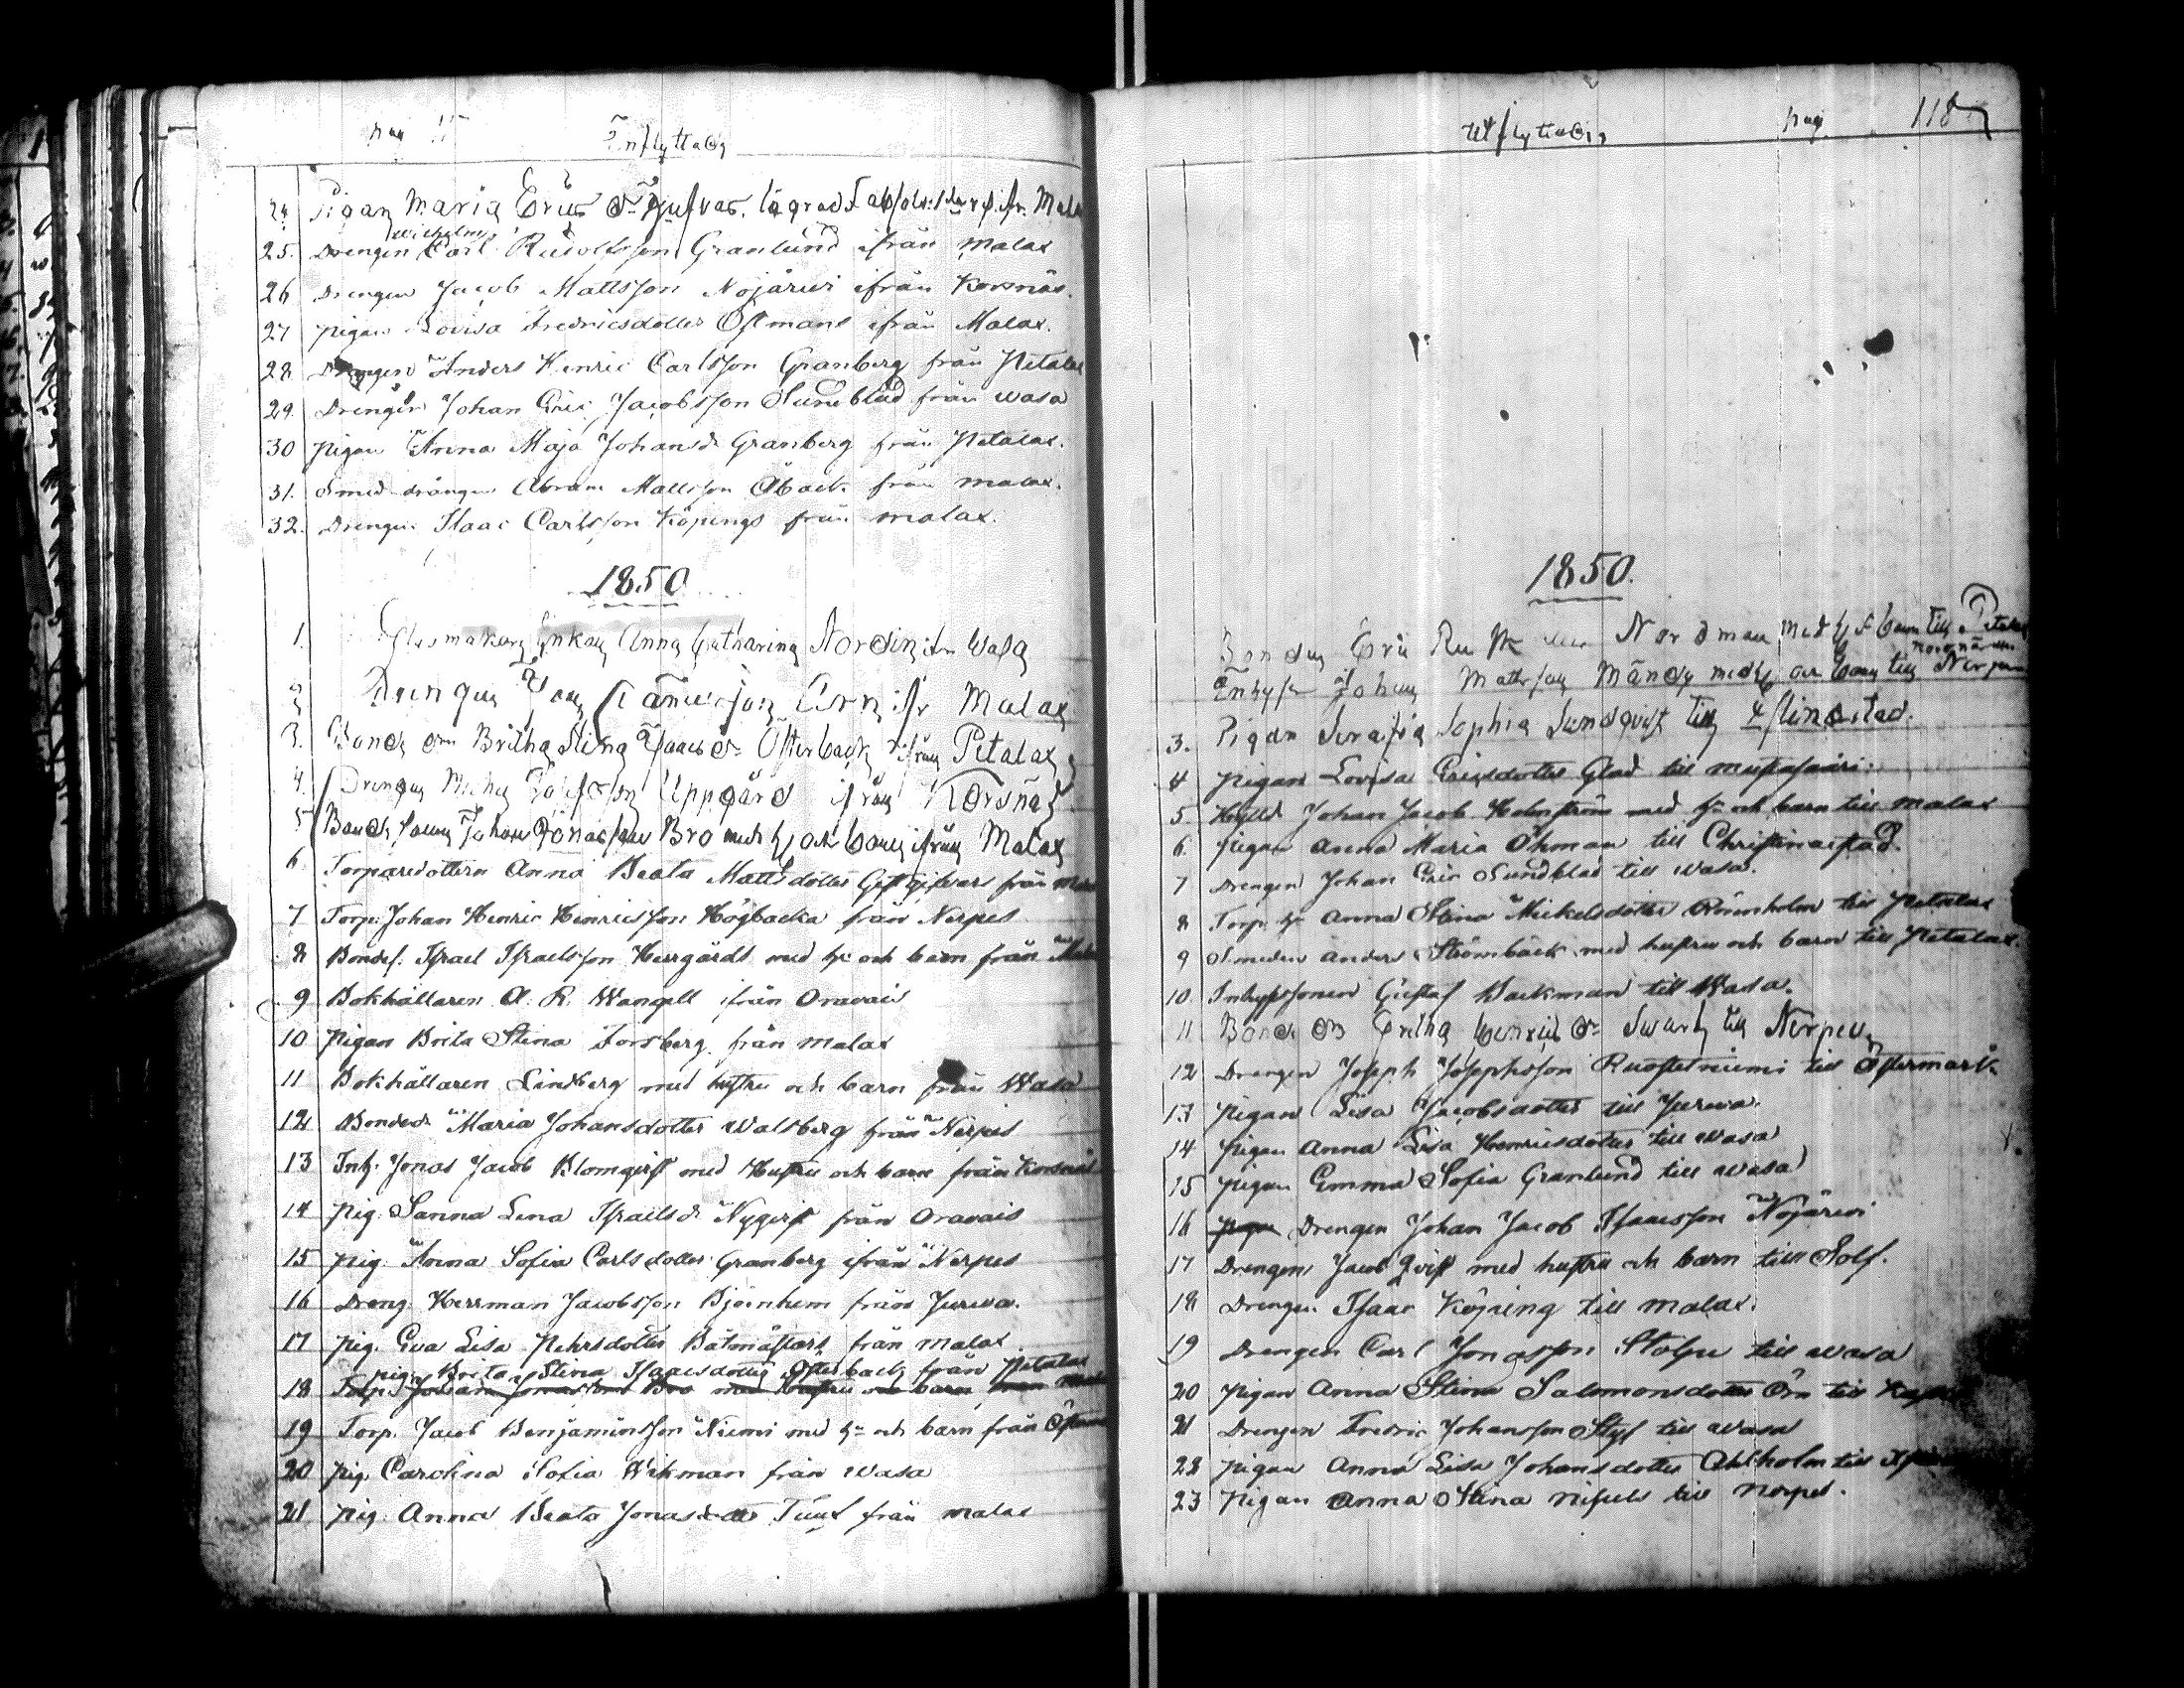 pag
Inflyttade
24. Pigan Maria Erics dr ifr. Mala
Wilhelm
25. Drengen Carl Rudolfsson Granlund ifrån Malax
26 Drengen Jacob Mattsson Nojärvi ifrån Korsnäs.
27 pigan Lovisa Fredricsdotter Östmans ifrån Malax.
28 Drengen Anders Henric Carlsson Granberg från Petalax
29. Drengen Johan Eric Jacobsson Sundblad från Wasa
30 pigan Anna Maja Johansdr Granberg från Petalax.
31. Smed drängen Abram Mattsson Åback från Malax.
32. Drengen Isaac Carlsson Köpings från Malax.
1850
1. Glasmakare Enkan Anna Catharina Nordin ifr Wasa
2 Drengen ifr Malax
3. Bonde dr Britha Stina Isaacs dr Österback ifrån Petalax
4. Drengen Michel Uppgård ifrån Korsnäs
5 Bonde sonen Johan Jonasson Bro med h och barn ifrån Malax
6 Torparedottern Anna Beata Mattsdotter Gästgifvars från
7 Torp. Johan Henric Henricsson Högbacka från Nerpes
8 Bondes. Israel Israelsson Herrgårds med h: och barn från
9 Bokhållaren A. R. Wangell ifrån Oravais
10 Pigan Brita Stina Forsberg från Malax
11 Bokhållaren Lindberg med hustru och barn från Wasa
12 Bondedr Maria Johansdotter Walsberg från Nerpes
13 Inh. Jonas Jacob Blomqvist med Hustru och barn från Korsnäs
14 pig. Sanna Lena Israelsdr Nyqvist från Oravais
15 pig. Anna Sofia Carlsdotter Granberg ifrån Nerpes
16 Dreng. Herrman Jacobsson Björnhem från Jurva.
17 pig. Eva Lisa Pehrsdotter Båtmästars från Malax
pig. Brita Stina Isaacsdotter Österback från Petalax
18 Torp. Johan Jonasson Bro med hustru och barn från
19 Torp. Jacob Benjaminsson Niemi med h: och barn från
20 pig Carolina Sofia Wikman från Wasa
21 pig. Anna Beata Jonasdotter Tuux från Malax
Utflyttade
pag
118
1850.
Bonden Eric Nordman med h och barn till Petalax
Inhyse Johan Mattsson Mändy med h och barn till
3. Pigan Serafia Sophia Sundqvist till
4 Pigan Lovisa Ericsdotter Glad till Mustasaari.
5 Johan Jacob Holmström med h: och barn till Malax
6. Pigan Anna Maria Öhman till Christinæstad.
7 Drengen Johan Eric Sundblad till Wasa.
8 Torp. h: Anna Stina Mickelsdotter Rönnholm till Petalax
9 Smeden Anders Strömbäck med hustru och barn till Petalax.
10. Inhyssonen Gustaf Backman till Wasa.
11 Bonde dr Henrics dr Svarts till Nerpes
12 Drengen Joseph Josephsson till Östermark
13 Pigan Lisa Jacobsdotter till Jurva.
14 Pigan Anna Lisa Henricsdotter till Wasa
15 Pigan Emma Sofia Granlund till Wasa
16 Pigan Drengen Johan Jacob Isaacsson Nojärvi
17 Drengen Jacob Qvist med hustru och barn till Solf.
18 Drengen Isaac Köping till Malax.
19 Drengen Carl Jonasson Stolpe till Wasa
20 Pigan Anna Stina Salomonsdotter Örn till
21 Drengen Fredric Johansson Styf till Wasa
22 Pigan Anna Lisa Johansdotter Ahlholm till
23 Pigan Anna Stina till Nerpes.